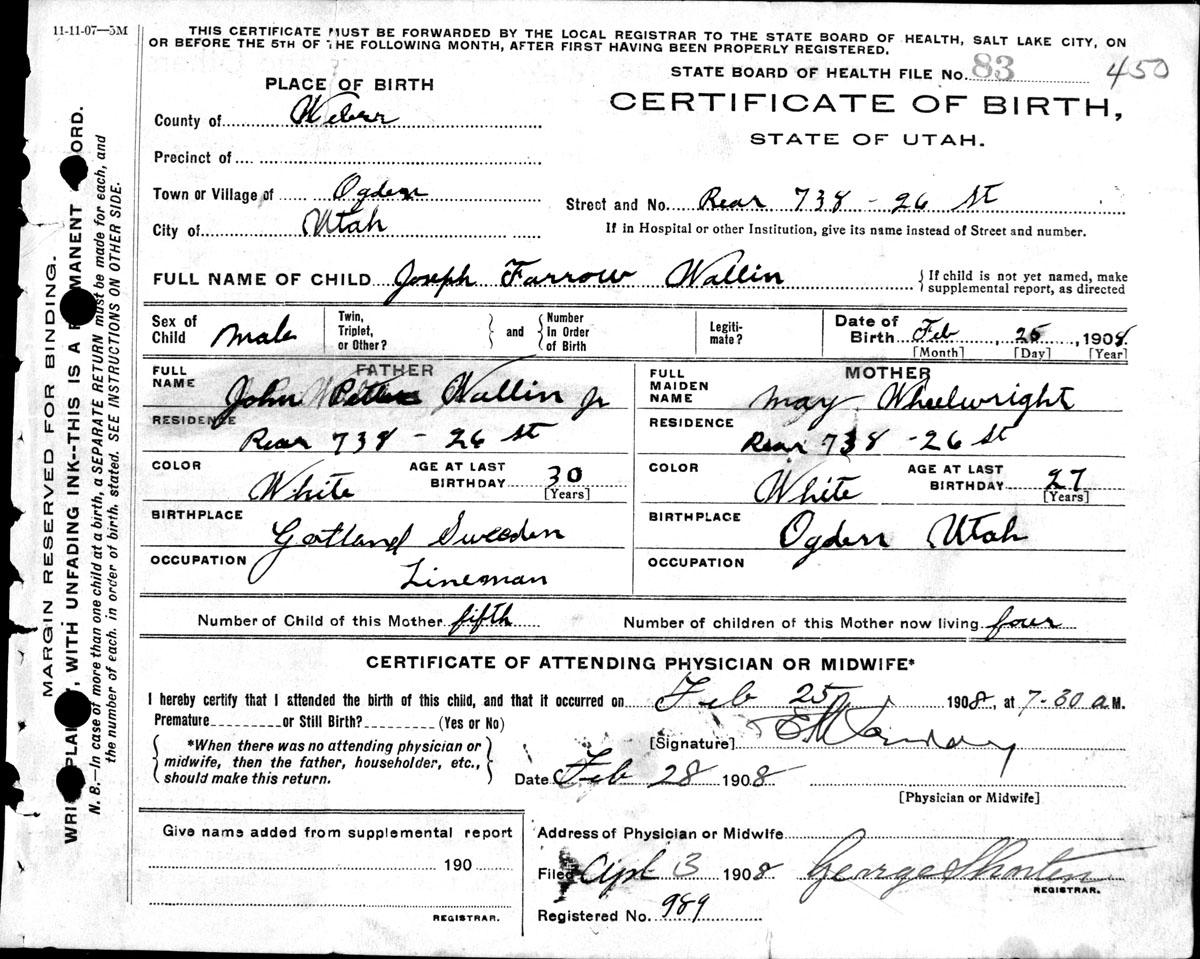 11-11-07—5M
THIS CERTIFICATE MUST BE FORWARDED BY THE LOCAL REGISTRAR TO THE STATE BOARD OF HEALTH, SALT LAKE CITY, ON
OR BEFORE THE 5TH OF THE FOLLOWING MONTH, AFTER FIRST HAVING BEEN PROPERLY REGISTERED.
STATE BOARD OF HEALTH FILE No. 83 450
PLACE OF BIRTH
CERTIFICATE OF BIRTH,
STATE OF UTAH.
County of Weber
Precinct of
Town or Village of Ogden
Street and No. Rear 738 - 26 St
City of Utah
If in Hospital or other Institution, give its name instead of Street and number.
FULL NAME OF CHILD Joseph Farrow Wallin
{ If child is not yet named, make
supplemental report, as directed
Sex of Child Male
Twin, Triplet, or Other? } and { Number In Order of Birth
Legiti-mate?
Date of Birth Feb, 25, 1908
[Month] [Day] [Year]
FATHER
FULL NAME John Wallin Jr
RESIDENCE
Rear 738 - 26 St
COLOR White
AGE AT LAST BIRTHDAY 30
[Years]
BIRTHPLACE
Gotland Sweeden
OCCUPATION
Lineman
MOTHER
FULL MAIDEN NAME May Wheelwright
RESIDENCE
Rear 738 - 26 St
COLOR White
AGE AT LAST BIRTHDAY 27
[Years]
BIRTHPLACE
Ogden Utah
OCCUPATION
Number of Child of this Mother fifth
Number of children of this Mother now living four
CERTIFICATE OF ATTENDING PHYSICIAN OR MIDWIFE*
I hereby certify that I attended the birth of this child, and that it occurred on Feb 25 1908, at 7-30 a M.
Premature or Still Birth? (Yes or No)
{ *When there was no attending physician or
midwife, then the father, householder, etc.,
should make this return. }
[Signature]
Date Feb 28 1908
[Physician or Midwife]
Give name added from supplemental report
190
REGISTRAR.
Address of Physician or Midwife
Filed Apl 3 1908 George Shorten
REGISTRAR.
Registered No. 989
MARGIN RESERVED FOR BINDING.
WRITE PLAINLY, WITH UNFADING INK--THIS IS A PERMANENT RECORD.
N. B.—In case of more than one child at a birth, a SEPARATE RETURN must be made for each, and
the number of each, in order of birth, stated. SEE INSTRUCTIONS ON OTHER SIDE.